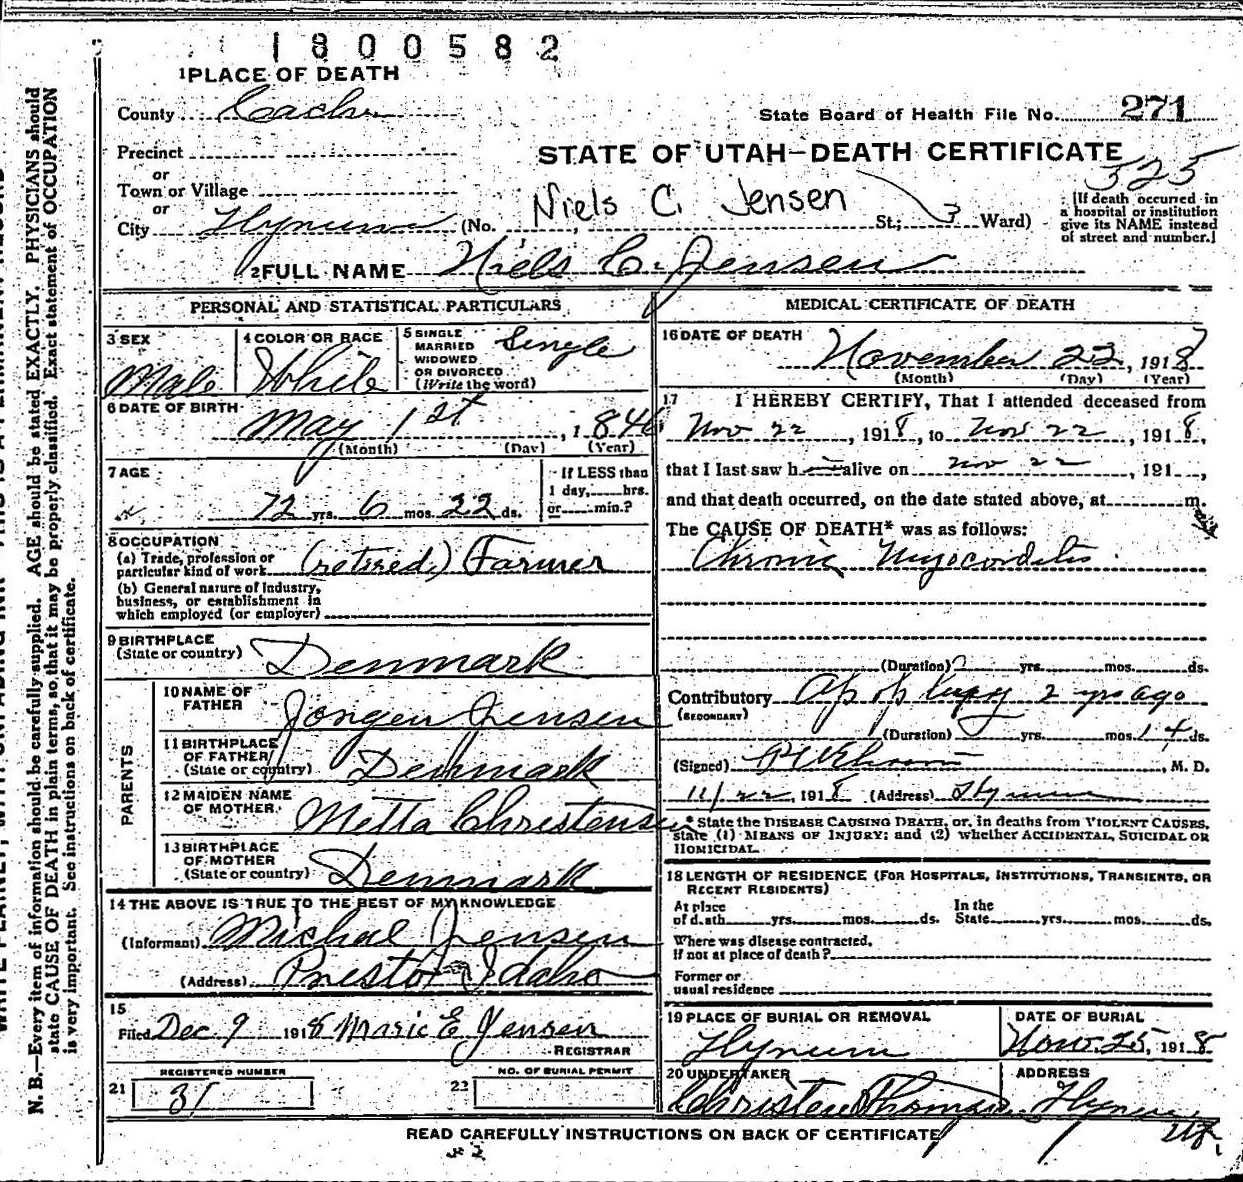 1800582
1 PLACE OF DEATH
County Cache
State Board of Health File No. 271
Precinct
STATE OF UTAH—DEATH CERTIFICATE
525
or
Town or Village
or
City Hyrum (No. Niels C. Jensen St.; 3 Ward)
[If death occurred in
a hospital or institution
give its NAME instead
of street and number.]
2 FULL NAME Niels C. Jensen
PERSONAL AND STATISTICAL PARTICULARS
3 SEX Male
4 COLOR OR RACE White
5 SINGLE
MARRIED
WIDOWED
OR DIVORCED
(Write the word) Single
6 DATE OF BIRTH May 1st, 1846
(Month) (Day) (Year)
7 AGE
72 yrs. 6 mos. 22 ds.
If LESS than
1 day, hrs.
or min.?
8 OCCUPATION
(a) Trade, profession or
particular kind of work (retired) Farmer
(b) General nature of industry,
business, or establishment in
which employed (or employer)
9 BIRTHPLACE
(State or country) Denmark
PARENTS
10 NAME OF
FATHER Jorgen Jensen
11 BIRTHPLACE
OF FATHER
(State or country) Denmark
12 MAIDEN NAME
OF MOTHER Metta Christensen
13 BIRTHPLACE
OF MOTHER
(State or country) Denmark
14 THE ABOVE IS TRUE TO THE BEST OF MY KNOWLEDGE
(Informant) Michal Jensen
(Address) Preston Idaho
15
Filed Dec. 9 1918 Marie E Jensen
REGISTRAR
REGISTERED NUMBER
21 31
NO. OF BURIAL PERMIT
22
MEDICAL CERTIFICATE OF DEATH
16 DATE OF DEATH
November 22, 1918
(Month) (Day) (Year)
17 I HEREBY CERTIFY, That I attended deceased from
Nov 22, 1918, to Nov 22, 1918,
that I last saw h alive on Nov 22, 191
and that death occurred, on the date stated above, at m.
The CAUSE OF DEATH* was as follows:
Chronic Myocorditis
(Duration) yrs. mos. ds.
Contributory Apoplexy 2 yrs ago
(SECONDARY)
(Duration) yrs. mos. 14 ds.
(Signed) M. D.
11/22, 1918 (Address) Hyrum
* State the DISEASE CAUSING DEATH, or, in deaths from VIOLENT CAUSES,
state (1) MEANS OF INJURY; and (2) whether ACCIDENTAL, SUICIDAL OR
HOMICIDAL.
18 LENGTH OF RESIDENCE (FOR HOSPITALS, INSTITUTIONS, TRANSIENTS, OR
RECENT RESIDENTS)
At place
of death yrs. mos. ds.
In the
State yrs. mos. ds.
Where was disease contracted,
If not at place of death?
Former or
usual residence
19 PLACE OF BURIAL OR REMOVAL
Hyrum
DATE OF BURIAL
Nov. 25, 1918
20 UNDERTAKER
Christen Thomsen
ADDRESS
Hyrum
READ CAREFULLY INSTRUCTIONS ON BACK OF CERTIFICATE
N. B.—Every item of information should be carefully supplied. AGE should be stated EXACTLY. PHYSICIANS should
state CAUSE OF DEATH in plain terms, so that it may be properly classified. Exact statement of OCCUPATION
is very important. See instructions on back of certificate.